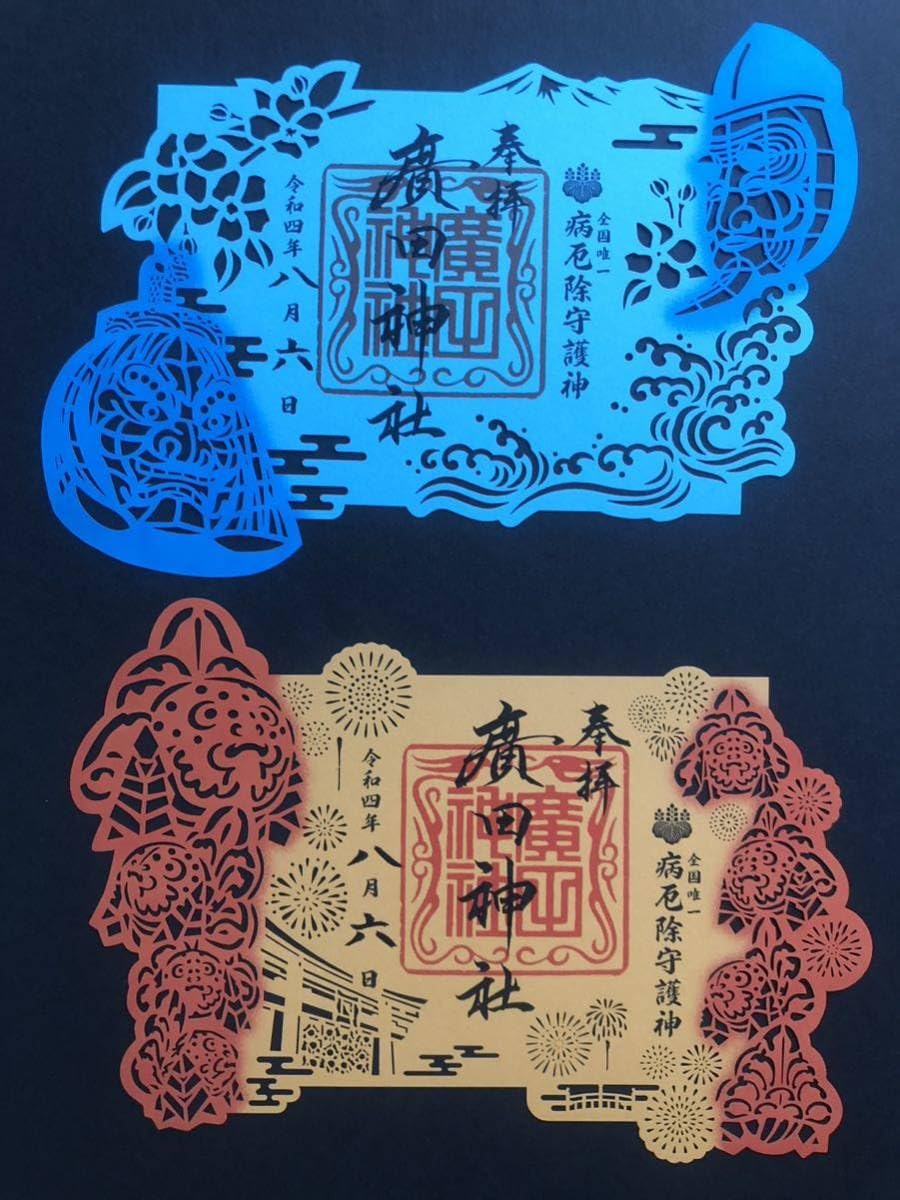 全国唯一
病厄除守護神
奉拝
廣田神社
廣田神社
令和四年八月六日
全国唯一
病厄除守護神
奉拝
廣田神社
廣田神社
令和四年八月六日